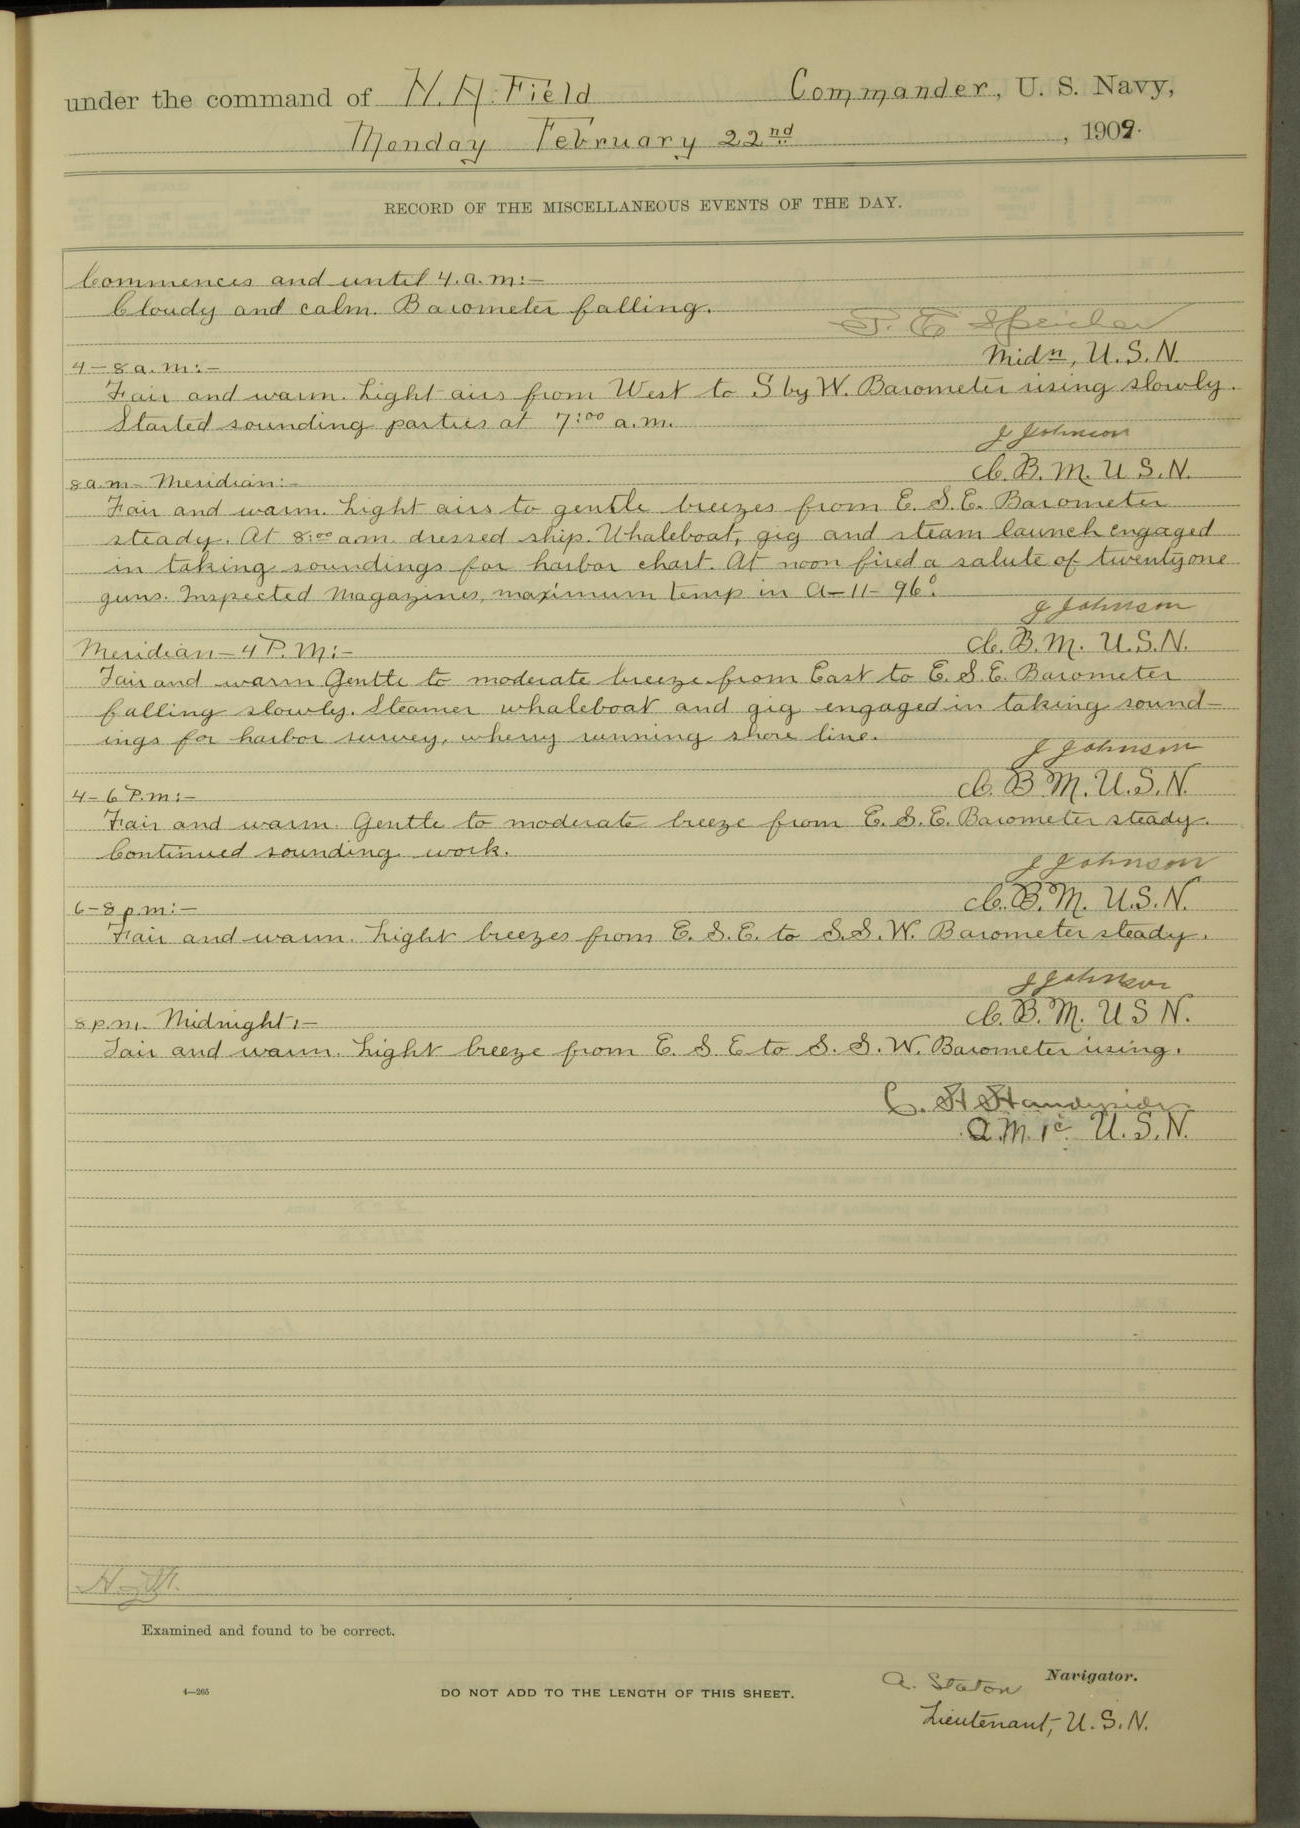 under the command of H. A. Field Commander, U. S. Navy,
Monday February 22nd, 1909.
RECORD OF THE MISCELLANEOUS EVENTS OF THE DAY.
Commences and until 4.a.m:-
Cloudy and calm. Barometer falling.
Midn, U.S.N.
4-8 a.m:-
Fair and warm. Light airs from West to S by W. Barometer rising slowly.
Started sounding parties at 7:00 a.m.
J Johnson
C.B.M. U S.N.
8 a.m- Meridian:-
Fair and warm. Light airs to gentle breezes from E. S.E. Barometer
steady. At 8:00 a.m. dressed ship. Whaleboat, gig and steam launch engaged
in taking soundings for harbor chart. At noon fired a salute of twentyone
guns. Inspected Magazines, maximum temp in A-11- 96°.
J Johnson
C.B.M. U.S.N.
Meridian-4 P.M:-
Fair and warm Gentle to moderate breeze from East to E. S. E. Barometer
falling slowly. Steamer whaleboat and gig engaged in taking sound-
ings for harbor survey, wherry running shore line.
J Johnson
C. B M. U.S.N.
4-6 P.m:-
Fair and warm. Gentle to moderate breeze from E. S.E. Barometer steady.
Continued sounding work.
J Johnson
C.B.M. U.S.N.
6-8 p.m:-
Fair and warm. Light breezes from E. S.E. to S.S.W. Barometer steady.
J Johnson
C.B.M. U S N.
8 p.m. Midnight:-
Fair and warm. Light breeze from E. S. E to S. S. W. Barometer rising.
C. H Handyside
Q.M. 1c U.S.N.
Examined and found to be correct.
A. Staton Navigator.
4—265 DO NOT ADD TO THE LENGTH OF THIS SHEET.
Lieutenant, U.S.N.